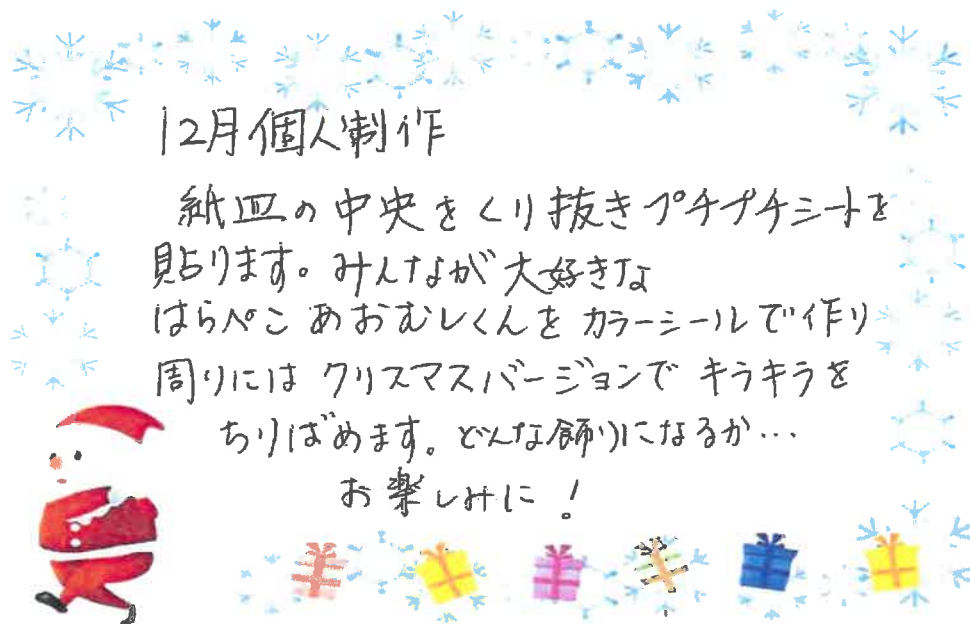 12月個人制作
紙皿の中央をくり抜きプチプチシートを
貼ります。みんなが大好きな
はらぺこあおむしくんをカラーシールで作り
周りにはクリスマスバージョンでキラキラを
ちりばめます。どんな飾りになるか…
お楽しみに!